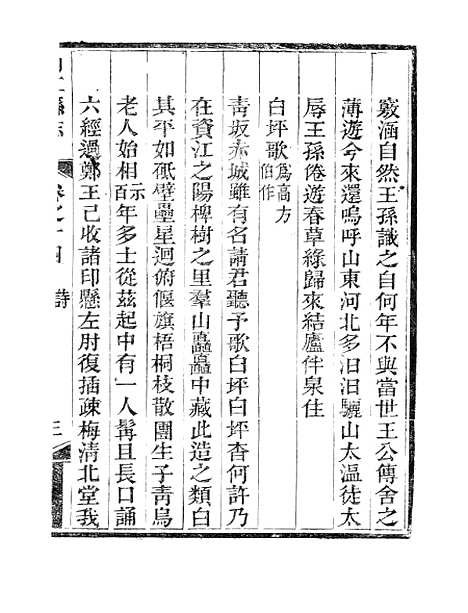 竅涵自然王孫識之自何年不與當世王公傳舍之
薄遊今來還嗚呼山東河北多汩汩驪山太溫徒太
辱王孫倦遊春草綠歸來結廬伴泉住
白坪歌爲高方伯作
靑坂赤城雖有名請君聽予歌白坪白坪杳何許乃
在資江之陽椑樹之里羣山矗矗中藏此造之類白
其平如砥壁壘星迴俯偃旗梧桐枝散團生子靑烏
老人始相示百年多士從茲起中有一人髯且長口誦
六經過鄭王已收諸印懸左肘復插疎梅清北堂我
卷之十四 詩 三